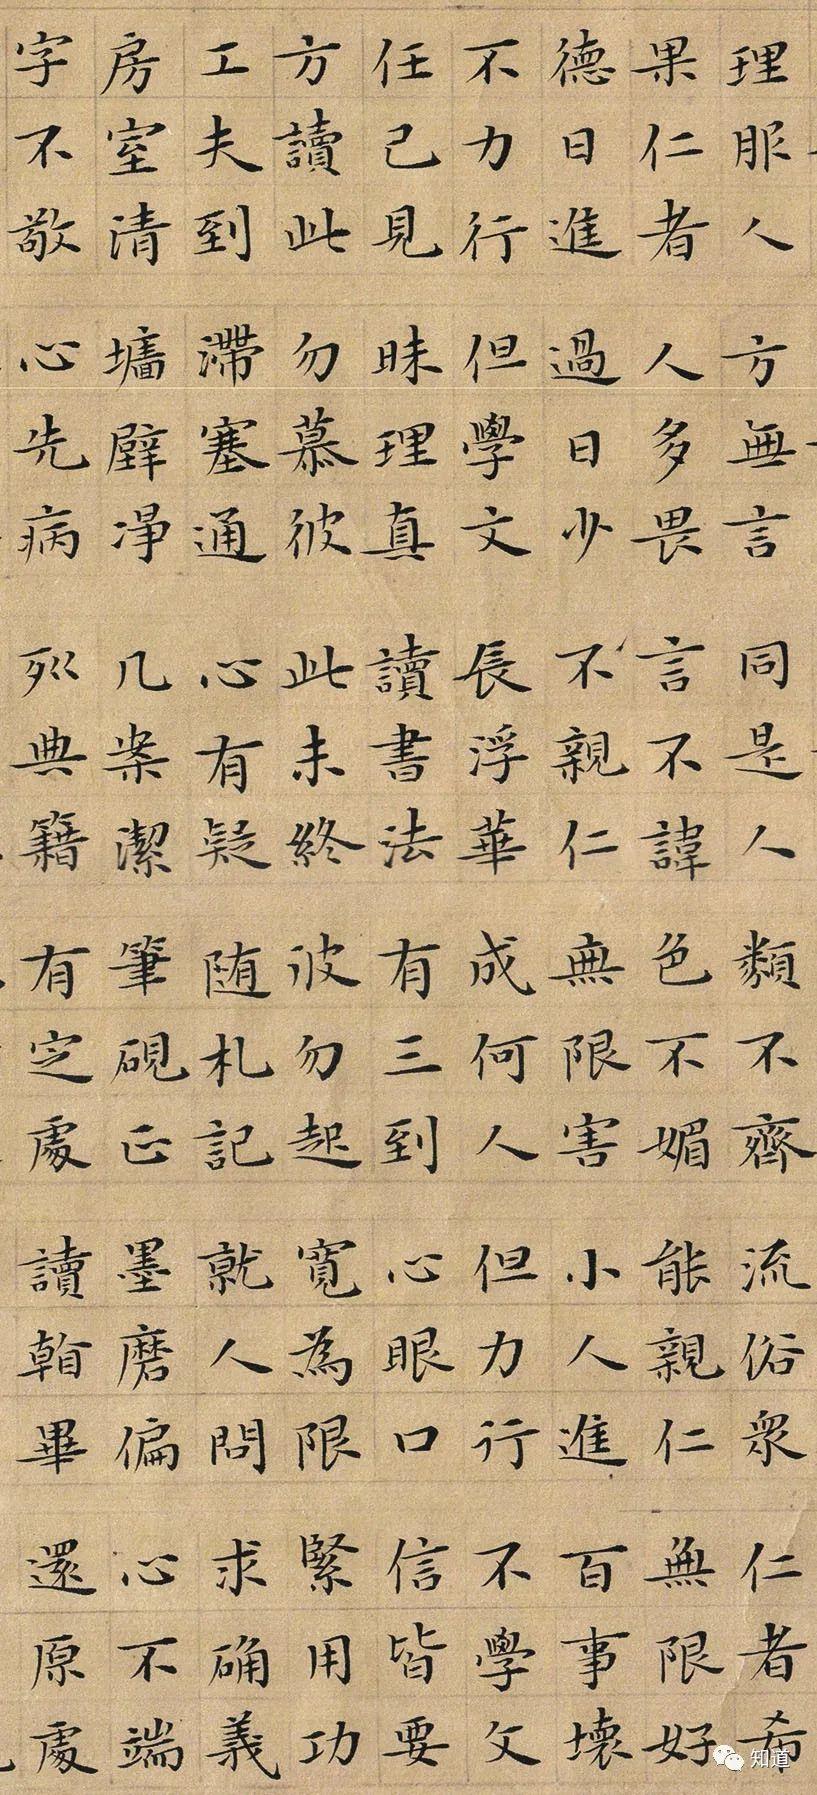 理服人方無言同是人類不齊流俗眾仁者希
果仁者人多畏言不諱色不媚能親仁無限好
德日進過日少不親仁無限害小人進百事壞
不力行但學文長浮華成何人但力行不學文
任己見昧理真讀書法有三到心眼口信皆要
方讀此勿慕彼此未終彼勿起寬為限緊用功
工夫到滯塞通心有疑随札記就人問求确義
房室清墻壁淨几案潔筆硯正墨磨偏心不端
字不敬心先病列典籍有定處讀翰畢還原處
知道